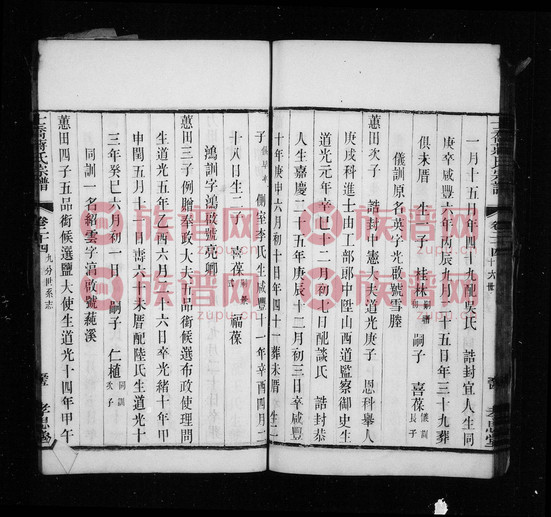 一月十五年四十九配吳氏　誥封宜人生同
庚卒咸豐十年丙辰九月三十年三十九葬
俱未厝　生子　桂林　嗣子　喜葆儀訓長子
儀訓原名英字光啟號雪塍
蕙田次子　誥封中憲大夫道光庚子　恩科舉人
庚戌科進士由工部郎中陞山西道監察御史生
人生嘉慶二十五年庚辰十二月初三日卒咸豐
道光元年辛巳十二月初七日配談氏　誥封恭
十年庚申六月初十日年四十一葬未厝　生二
子　側室李氏生咸豐十一年辛酉四月二
十八日生二子　喜葆　福葆
鴻訓字鴻啟號亮卿
蕙田三子例贈奉政大夫五品銜候選布政使理問
生道光五年乙酉六月二十六日卒光緒十年甲
申閏五月十二日壽六十未厝配陸氏生道光十
三年癸巳六月初一日　嗣子　仁植同訓次子
同訓一名紹雲字滈啟號蒓溪
蕙田四子五品銜候選鹽大使生道光十四年甲午
氏宗譜　卷二十四　九分世系志
孝思堂
族谱网
www.zupu.cn